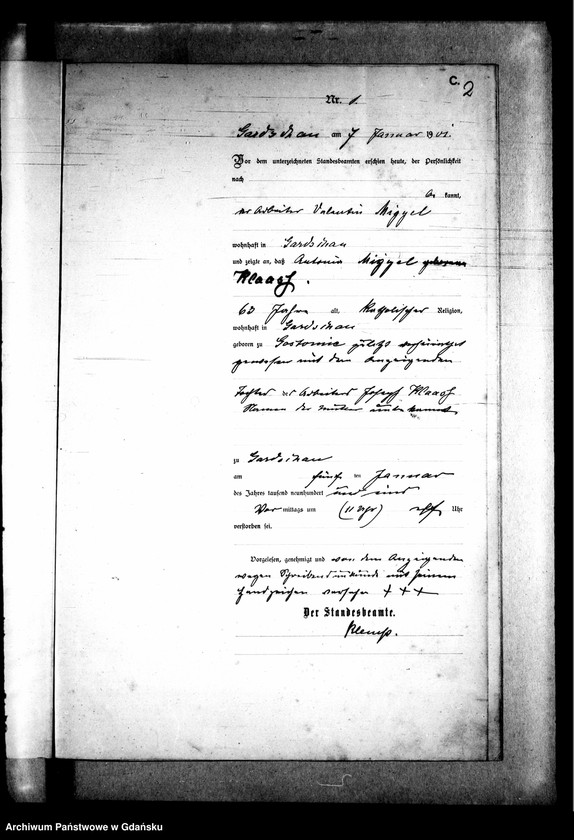 C.
2
Nr. 1
Gardschau am 7 Januar 1901.
Vor dem unterzeichneten Standesbeamten erschien heute, der Persönlichkeit
nach
kannt,
der Arbeiter Valentin Miggel
wohnhaft in Gardschau
und zeigte an, daß Antonie Miggel geborene
Klaass.
60 Jahre alt, katholischer Religion,
wohnhaft in Gardschau
geboren zu Gostomie zuletzt verheirathet
gewesen mit dem Anzeigenden
Tochter des Arbeiters Josef Klaass
Namen der Mutter unbekannt
zu Gardschau
am fünften Januar
des Jahres tausend neunhundert und eins
Vor mittags um (11 Uhr) elf Uhr
verstorben sei.
Vorgelesen, genehmigt und von dem Anzeigenden
wegen Schreibensunkunde mit seinem
Handzeichen versehen + + +
Der Standesbeamte.
Archiwum Państwowe w Gdańsku